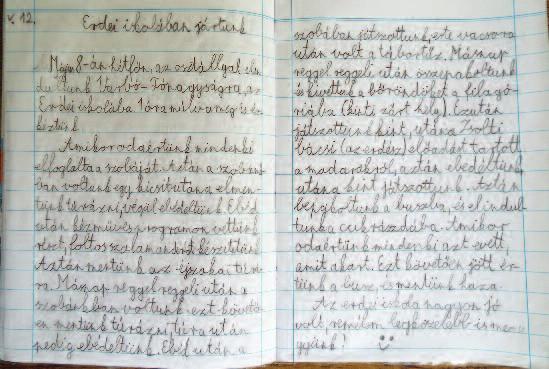 V. 12.
Erdei iskolában jártunk
Május 8-án hétfőn, az osztállyal elin-
dultunk Várbó-Fónagyságra, az
Erdei iskolába 1 óra múlva meg is ér-
keztünk.
Amikor odaértünk mindenki
elfoglalta a szobáját. Aztán a szobánk-
ban voltunk egy kicsit utána elmen-
tünk túrázni, végül ebédeltünk. Ebéd
után kézműves programon vettünk
részt, foltos szalamandrát készítettünk.
Aztán mentünk az éjszakai túrá-
ra. Másnap reggel reggeli után a
szobánkban voltunk ezt követő-
en mentünk túrázni, túra után
pedig ebédeltünk. Ebéd után a
szobában játszottunk, este vacsora
után volt a tábortűz. Másnap
reggel reggeli után összepakoltunk
és kivittük a bőröndöket a filagó-
riába (kinti zárt hely). Ezután
játszottunk kint, utána Zsolti
bácsi (az erdész) előadást tartott
a madarakról, aztán ebédeltünk,
utána kint játszottunk. Aztán
bepakoltunk a buszba, és el indul-
tunk a cukrászdába. Amikor
odaértünk mindenki azt evett,
amit akart. Ezt követően jött ér-
tünk a busz, és mentünk haza.
Az erdei iskola nagyon jó
volt, remélem legközelebb is me-
gyünk! :)